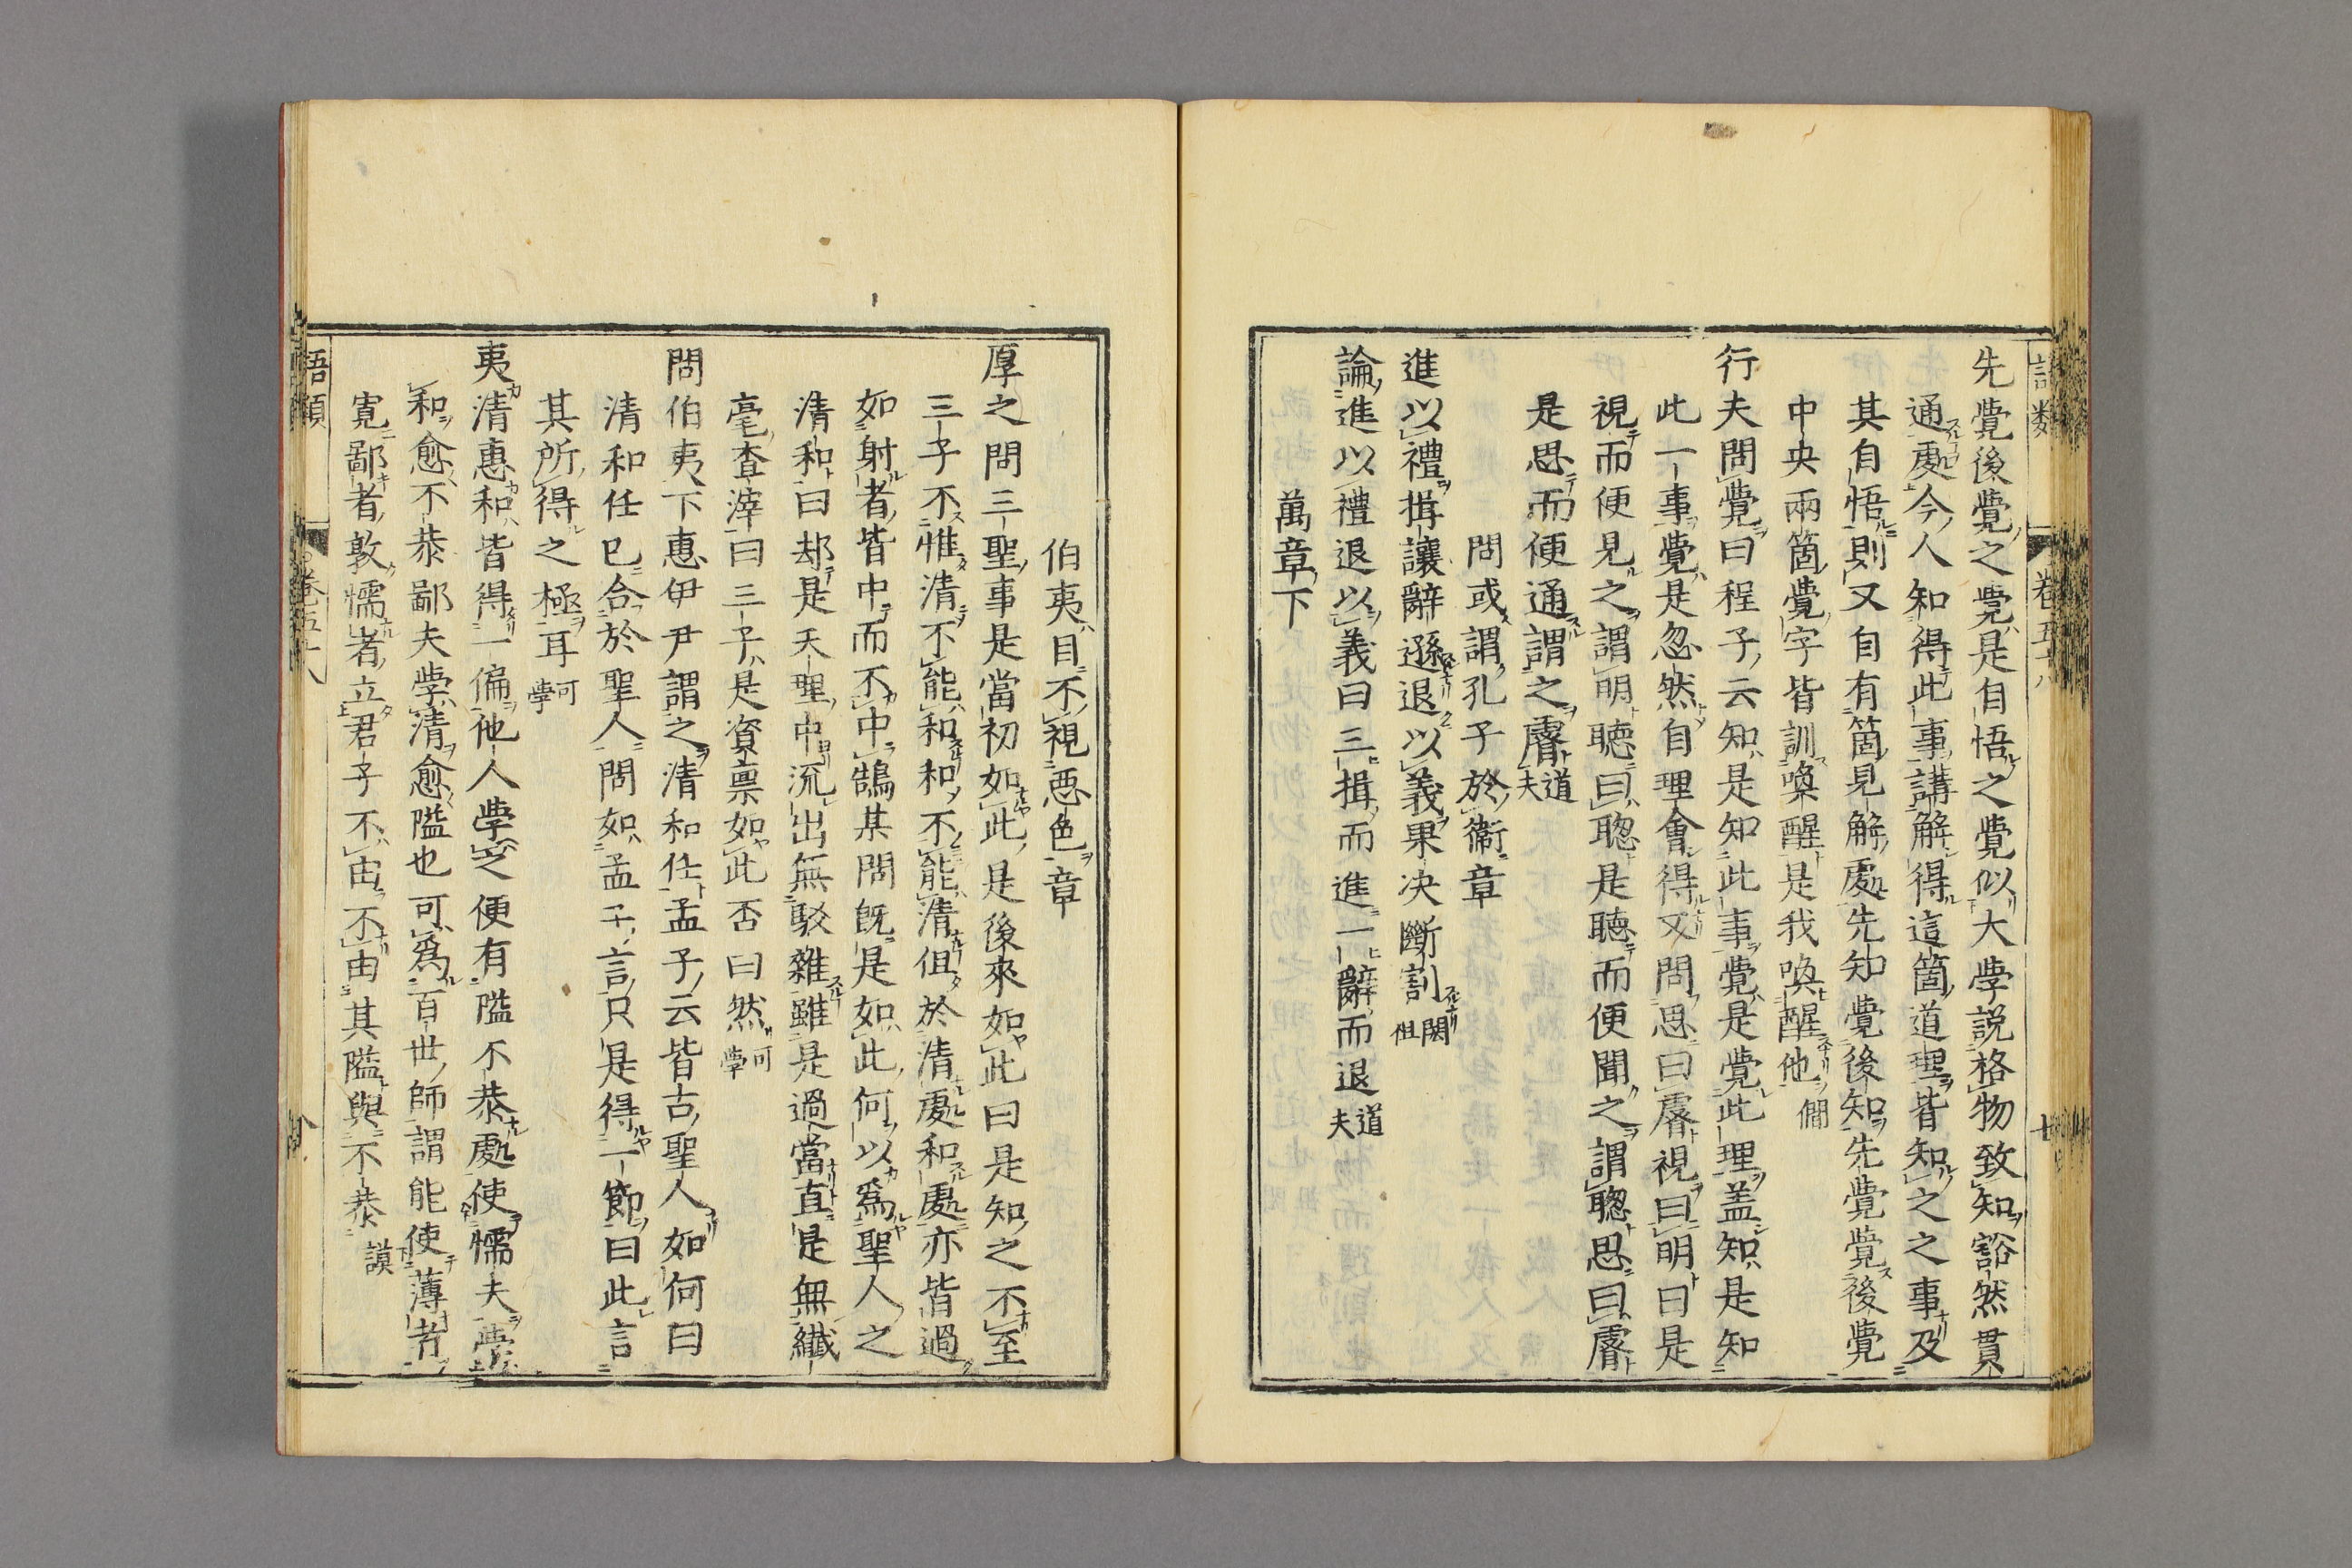 先覺後覺之覺是自悟之覺似大學説格物致知豁然貫
通處今人知得此事講解得這箇道理皆知之之事及
其自悟則又自有箇見解處先知覺後知先覺覺後覺
中央兩箇覺字皆訓喚醒是我喚醒他 僩
行夫問覺曰程子云知是知此事覺是覺此理盖知是知
此一事覺是忽然自理會得又問思曰睿視曰明曰是
視而便見之謂明聴曰聦是聴而便聞之謂聦思曰睿
是思而便通謂之睿 道夫
問或謂孔子於衞章
進以禮揖讓辭遜退以義果决斷割 閎祖
論進以禮退以義曰三揖而進一辭而退 道夫
萬章下
伯夷目不視惡色章
厚之問三聖事是當初如此是後來如此曰是知之不至
三子不惟清不能和和不能清但於清處和處亦皆過
如射者皆中而不中鵠某問旣是如此何以爲聖人之
清和曰却是天理中流出無駁雜雖是過當直是無纖
毫査滓曰三子是資禀如此否曰然 可學
問伯夷下惠伊尹謂之清和任孟子云皆古聖人如何曰
清和任已合於聖人問如孟子言只是得一節曰此言
其所得之極耳 可學
夷清惠和皆得一偏他人學之便有隘不恭處使懦夫學
和愈不恭鄙夫學清愈隘也可爲百世師謂能使薄者
寛鄙者敦懦者立君子不由不由其隘與不恭 謨